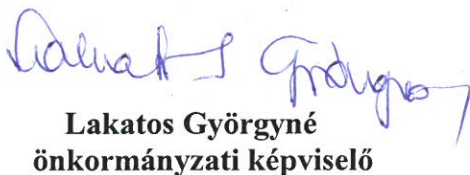 Lakatos Györgyné
Lakatos Györgyné
önkormányzati képviselő